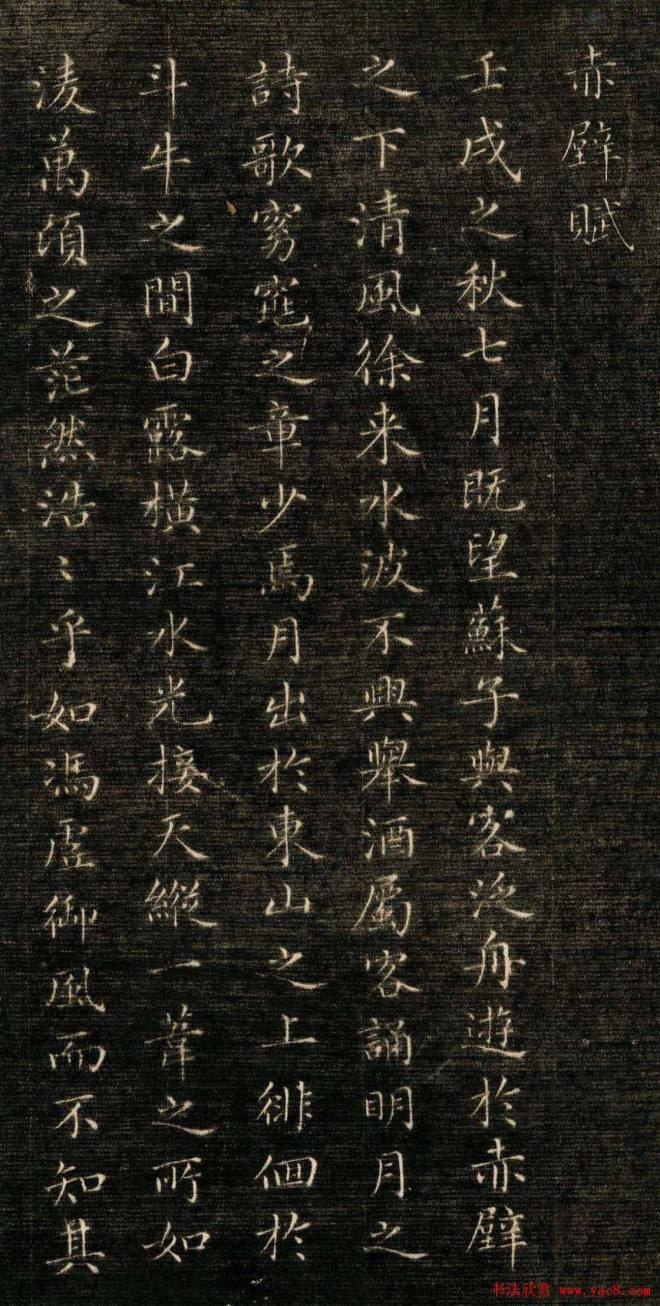 赤壁賦
壬戌之秋七月既望蘇子與客泛舟遊於赤壁
之下清風徐来水波不興舉酒屬客誦明月之
詩歌窈窕之章少焉月出於東山之上徘徊於
斗牛之間白露橫江水光接天縱一葦之所如
淩萬頃之茫然浩〻乎如馮虛御風而不知其
书法欣赏 www.yac8.com